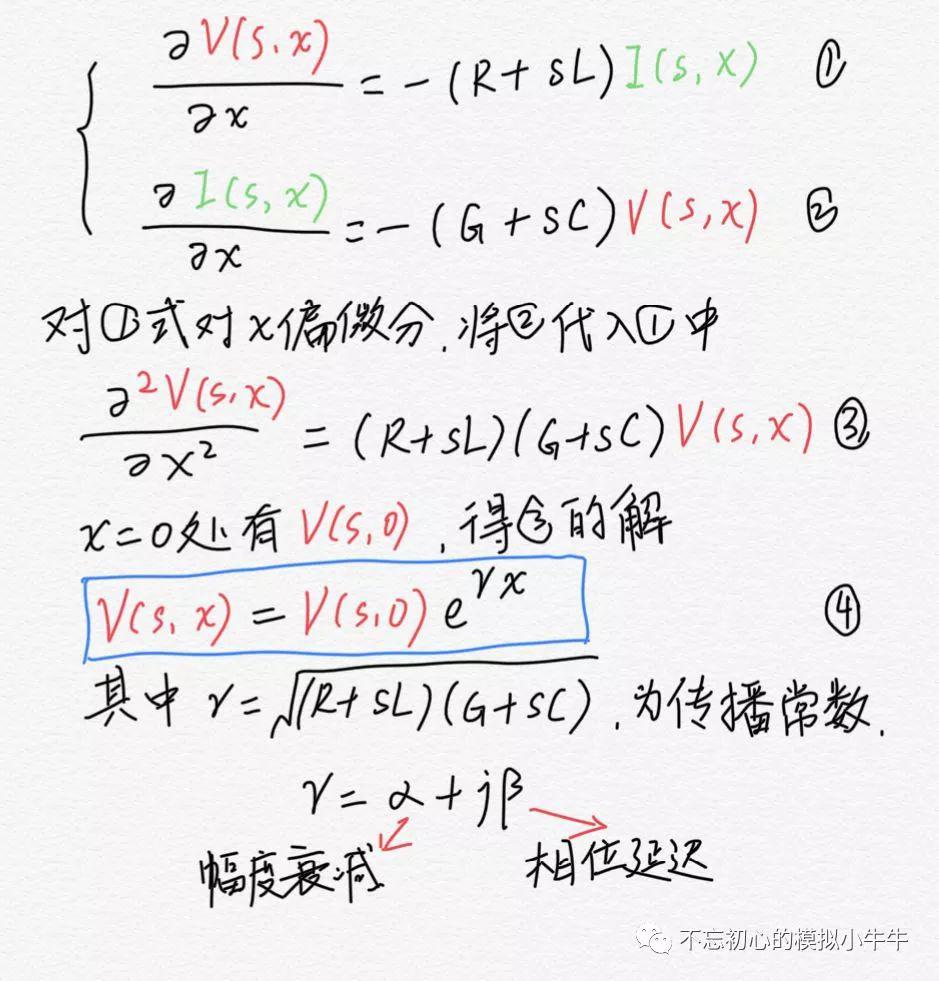 ∂V(s,x)/∂x = -(R+sL)I(s,x) ①
∂I(s,x)/∂x = -(G+sC)V(s,x) ②
对①式对x偏微分,将②代入①中
∂²V(s,x)/∂x² = (R+sL)(G+sC)V(s,x) ③
x=0处有V(s,0),得③的解
V(s,x) = V(s,0)e^{γx} ④
其中γ=√(R+sL)(G+sC),为传播常数.
γ=α+jβ
幅度衰减 相位延迟
不忘初心的模拟小牛牛